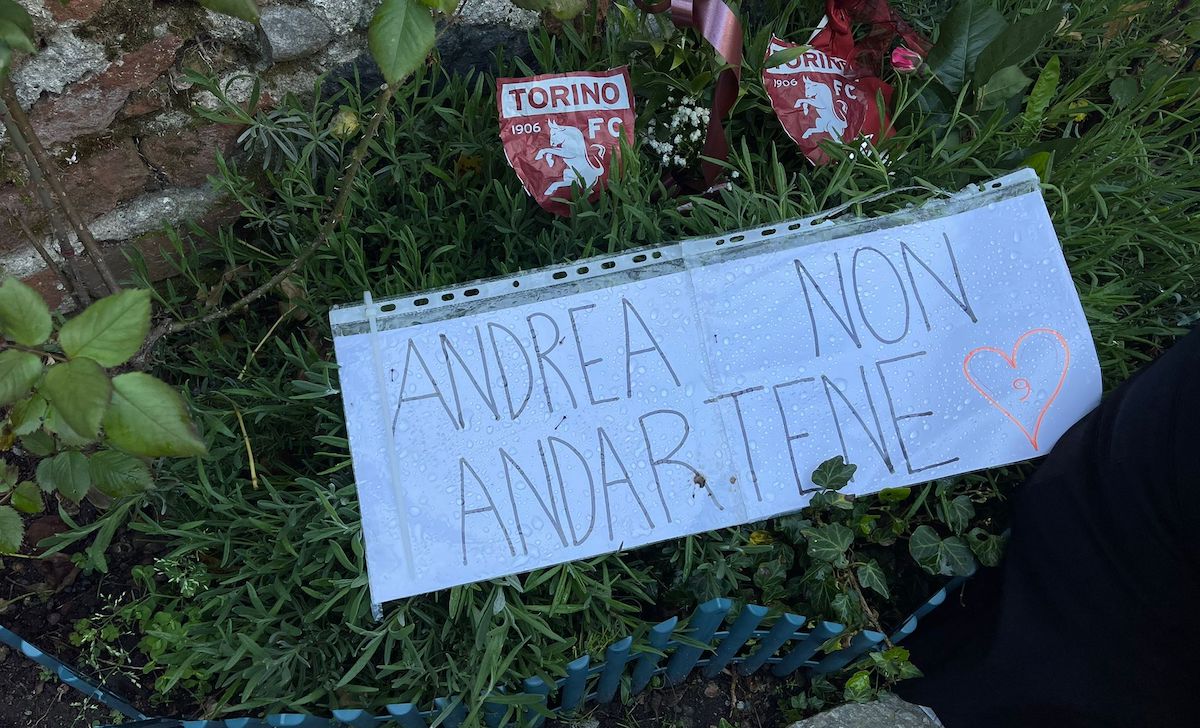 TORINO
1906 FC
TORINO
1906 FC
ANDREA NON
ANDARTENE
9